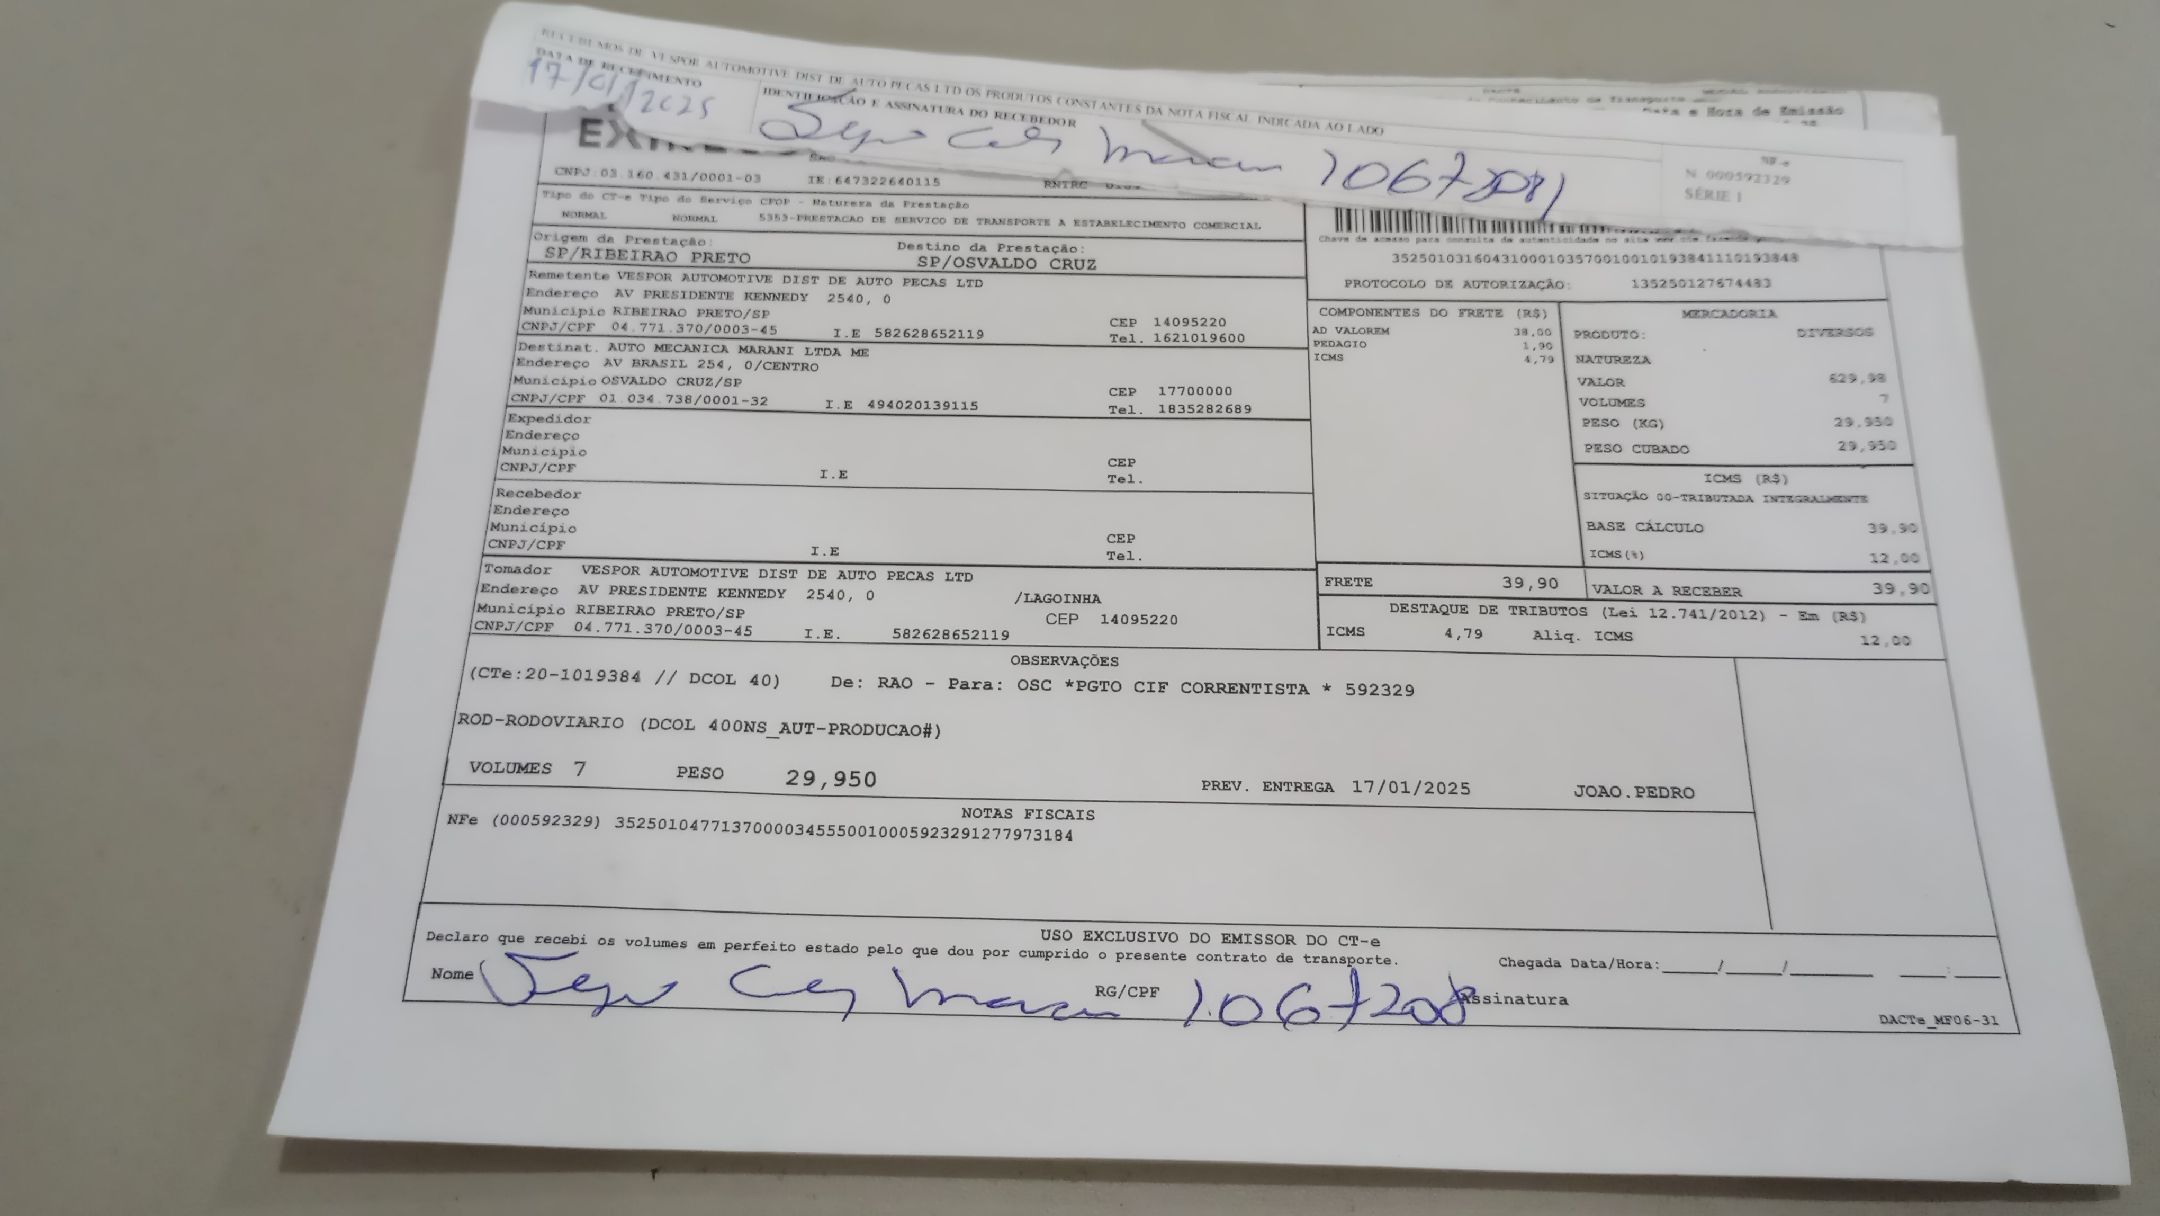 RECEBEMOS DE VESPOR AUTOMOTIVE DIST DE AUTO PECAS LTD OS PRODUTOS CONSTANTES DA NOTA FISCAL INDICADA AO LADO
DATA DE RECEBIMENTO
IDENTIFICAÇÃO E ASSINATURA DO RECEBEDOR
17/01/2025
NF-e
N 000592329
SÉRIE 1
Data e Hora de Emissão
CNPJ:03.160.431/0001-03 IE:647322640115 RNTRC
Tipo do CT-e Tipo do Serviço CFOP - Natureza da Prestação
NORMAL NORMAL 5353-PRESTACAO DE SERVICO DE TRANSPORTE A ESTABELECIMENTO COMERCIAL
Origem da Prestação: Destino da Prestação:
SP/RIBEIRAO PRETO SP/OSVALDO CRUZ
Chave de acesso para consulta de autenticidade no site
35250103160431000103570010010193841110193848
PROTOCOLO DE AUTORIZAÇÃO: 135250127674483
Remetente VESPOR AUTOMOTIVE DIST DE AUTO PECAS LTD
Endereço AV PRESIDENTE KENNEDY 2540, 0
Município RIBEIRAO PRETO/SP CEP 14095220
CNPJ/CPF 04.771.370/0003-45 I.E 582628652119 Tel. 1621019600
Destinat. AUTO MECANICA MARANI LTDA ME
Endereço AV BRASIL 254, 0/CENTRO
Município OSVALDO CRUZ/SP CEP 17700000
CNPJ/CPF 01.034.738/0001-32 I.E 494020139115 Tel. 1835282689
Expedidor
Endereço
Município CEP
CNPJ/CPF I.E Tel.
Recebedor
Endereço
Município CEP
CNPJ/CPF I.E Tel.
Tomador VESPOR AUTOMOTIVE DIST DE AUTO PECAS LTD
Endereço AV PRESIDENTE KENNEDY 2540, 0 /LAGOINHA
Município RIBEIRAO PRETO/SP CEP 14095220
CNPJ/CPF 04.771.370/0003-45 I.E. 582628652119
COMPONENTES DO FRETE (R$)
AD VALOREM 38,00
PEDAGIO 1,90
ICMS 4,79
MERCADORIA
PRODUTO: DIVERSOS
NATUREZA
VALOR 629,98
VOLUMES 7
PESO (KG) 29,950
PESO CUBADO 29,950
ICMS (R$)
SITUAÇÃO 00-TRIBUTADA INTEGRALMENTE
BASE CÁLCULO 39,90
ICMS(%) 12,00
FRETE 39,90 VALOR A RECEBER 39,90
DESTAQUE DE TRIBUTOS (Lei 12.741/2012) - Em (R$)
ICMS 4,79 Aliq. ICMS 12,00
OBSERVAÇÕES
(CTe:20-1019384 // DCOL 40) De: RAO - Para: OSC *PGTO CIF CORRENTISTA * 592329
ROD-RODOVIARIO (DCOL 400NS_AUT-PRODUCAO#)
VOLUMES 7 PESO 29,950 PREV. ENTREGA 17/01/2025 JOAO.PEDRO
NOTAS FISCAIS
NFe (000592329) 35250104771370000345550010005923291277973184
USO EXCLUSIVO DO EMISSOR DO CT-e
Declaro que recebi os volumes em perfeito estado pelo que dou por cumprido o presente contrato de transporte.
Chegada Data/Hora:_____/_____/_______ ____:____
Nome RG/CPF Assinatura
DACTe_MF06-31